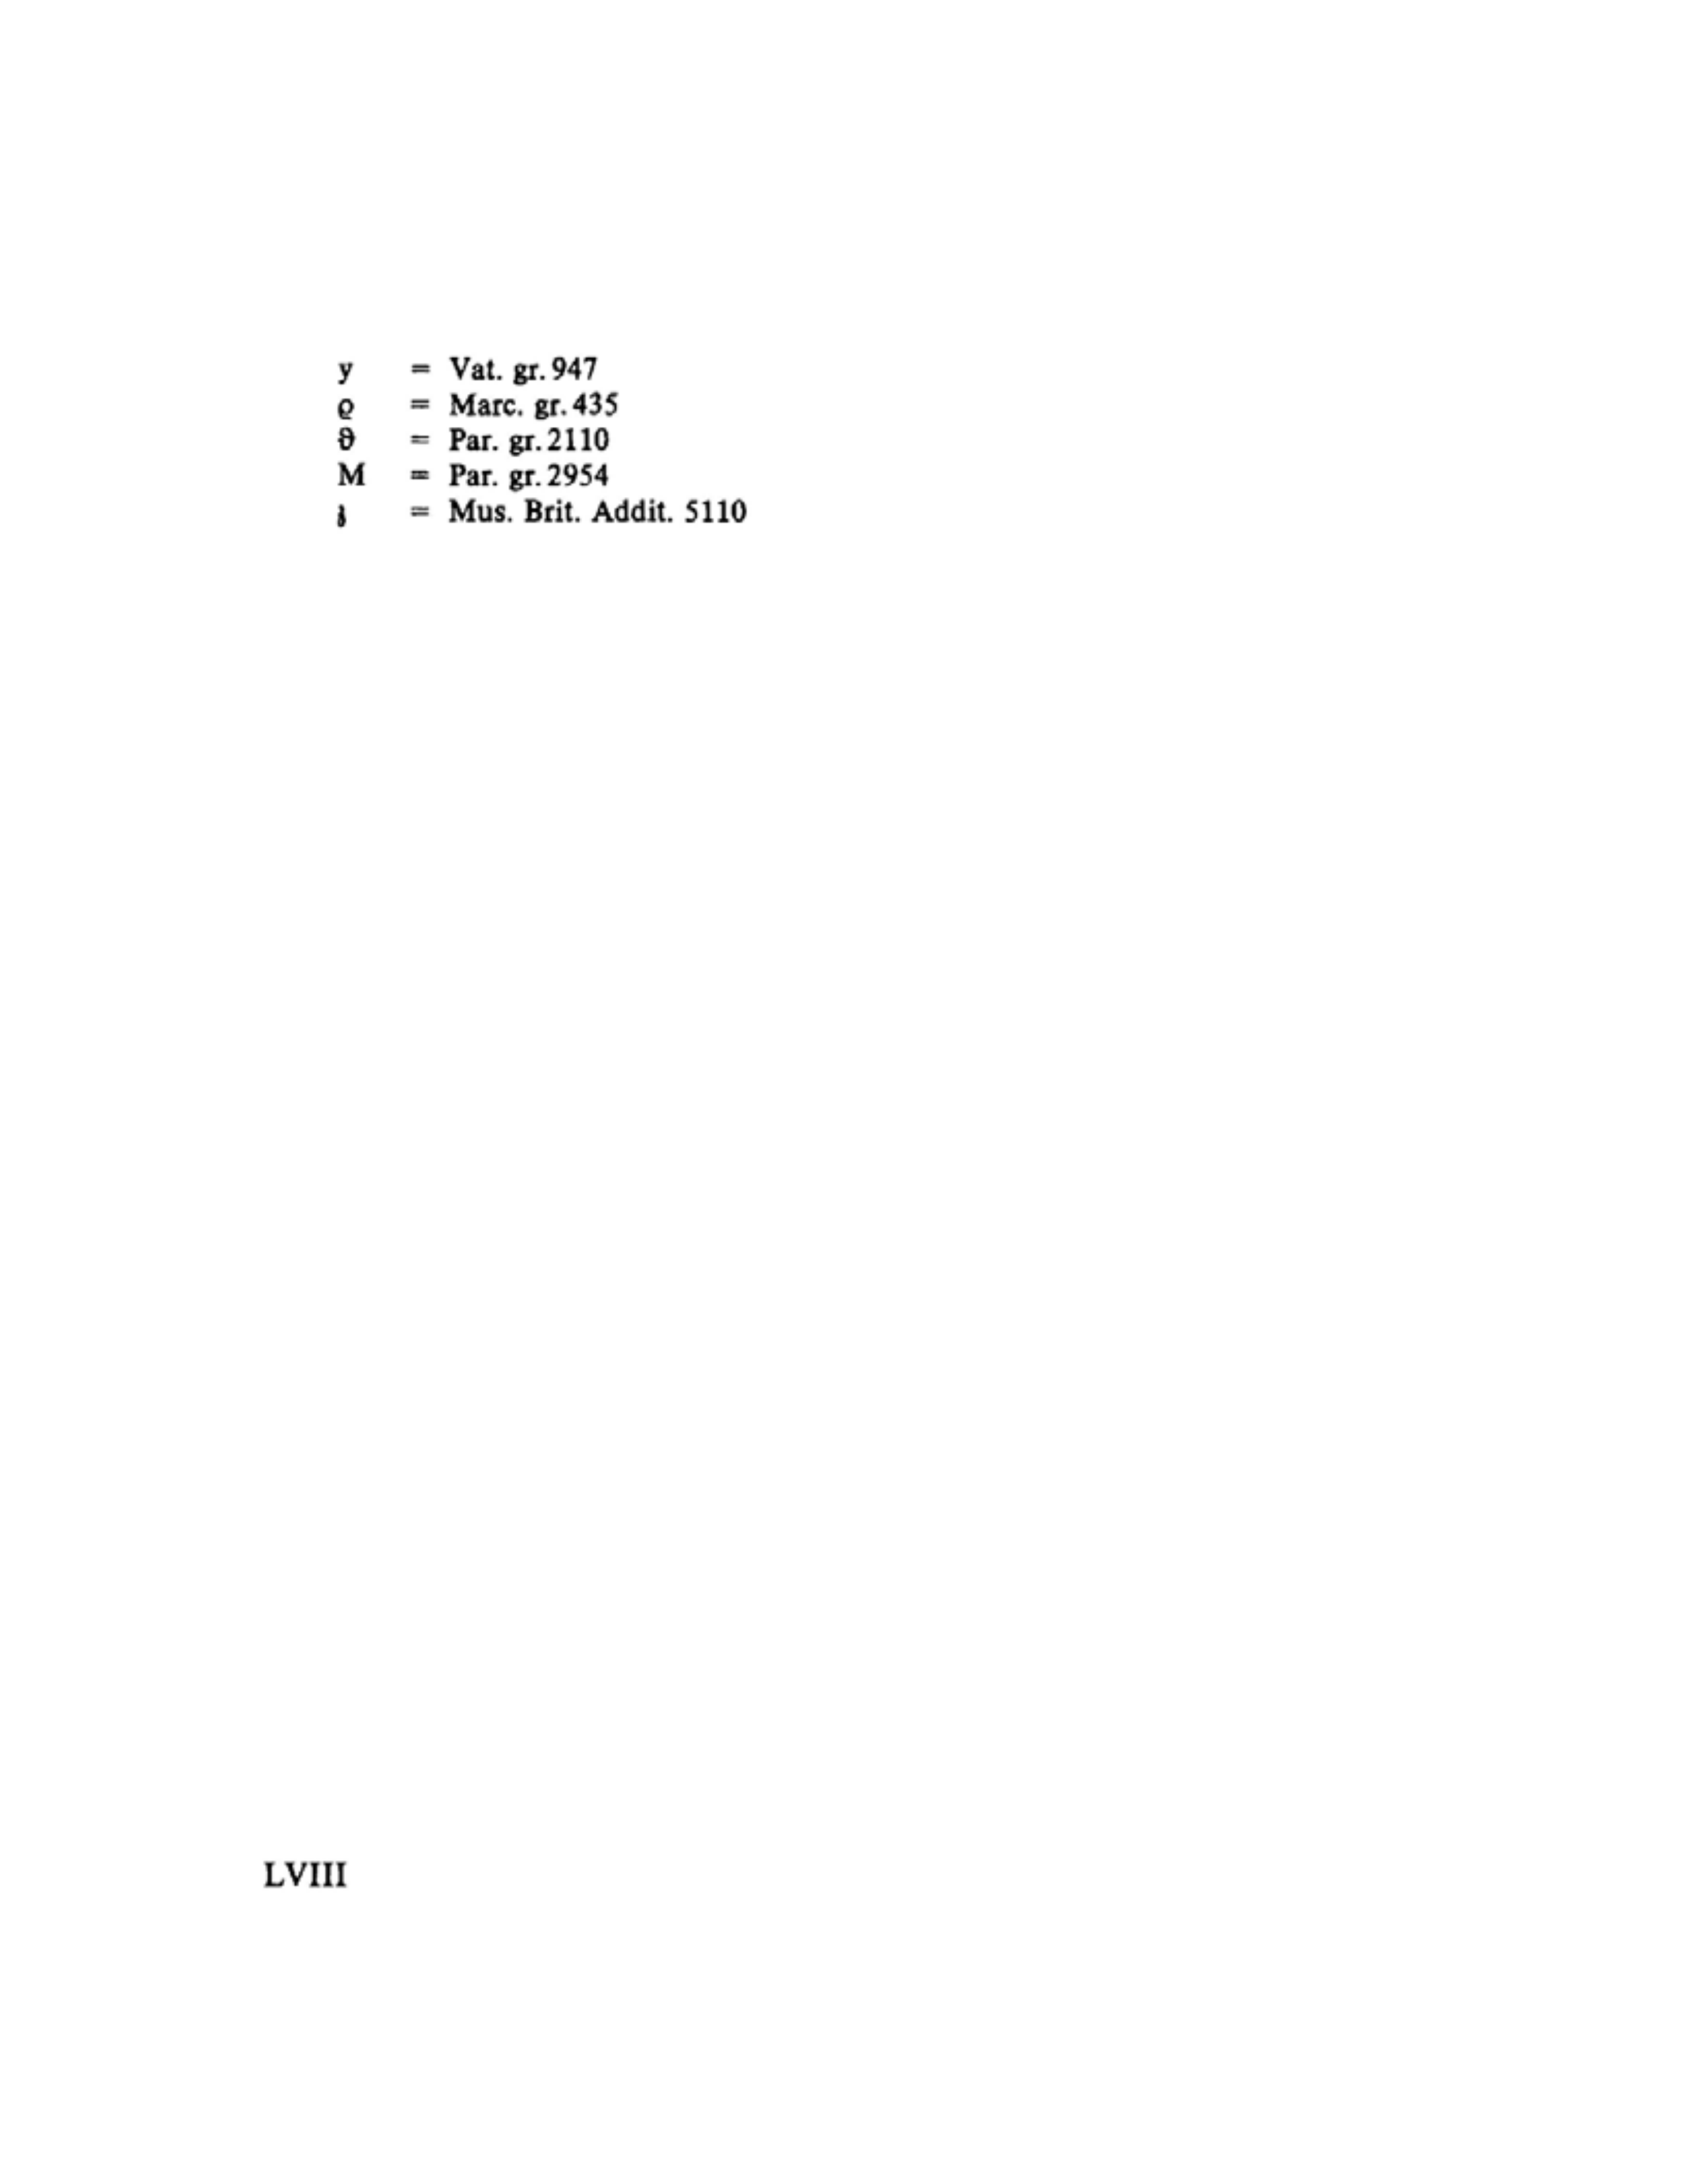 y = Vat. gr. 947
ϱ = Marc. gr. 435
ϑ = Par. gr. 2110
M = Par. gr. 2954
= Mus. Brit. Addit. 5110
LVIII